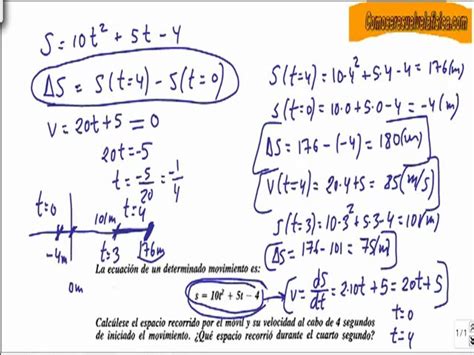 Comoseresuelvelafisica.com
S = 10t² + 5t - 4
ΔS = S(t=4) - S(t=0)
V = 20t + 5 = 0
20t = -5
t = -5/20 = -1/4
t=0
t=4
101m
-4m
t=3
176m
0m
S(t=4) = 10·4² + 5·4 - 4 = 176(m)
S(t=0) = 10·0 + 5·0 - 4 = -4(m)
ΔS = 176 - (-4) = 180(m)
V(t=4) = 20·4 + 5 = 85(m/s)
S(t=3) = 10·3² + 5·3 - 4 = 101m
ΔS = 176 - 101 = 75(m)
La ecuación de un determinado movimiento es:
s = 10t² + 5t - 4
V = dS/dt = 2·10t + 5 = 20t + 5
t=0
t=4
Calcúlese el espacio recorrido por el móvil y su velocidad al cabo de 4 segundos
de iniciado el movimiento. ¿Qué espacio recorrió durante el cuarto segundo?
1/1